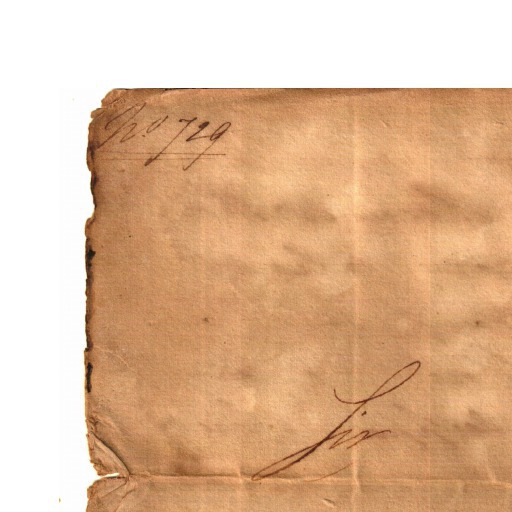 No 729
Sir